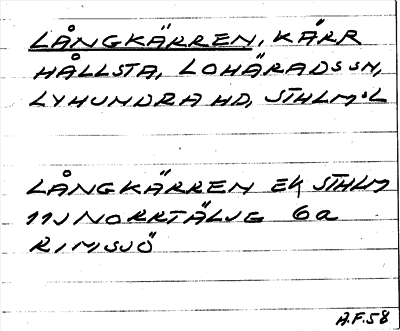 LÅNGKÄRREN, KÄRR
HÅLLSTA, LOHÄRADS SN,
LYHUNDRA HD, STHLM:L
LÅNGKÄRREN EK STHLM
11J NORRTÄLJE 6a
RIMSJÖ
A.F.58